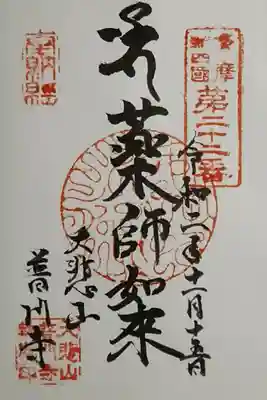 多摩
新四國
第二十二番
令和二年十一月十五日
薬師如来
大悲山
普門寺
大悲山